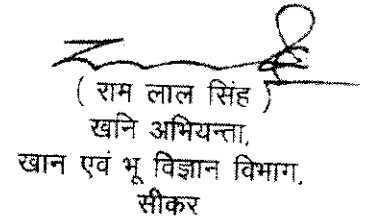 ( राम लाल सिंह )
खनि अभियन्ता,
खान एवं भू विज्ञान विभाग,
सीकर